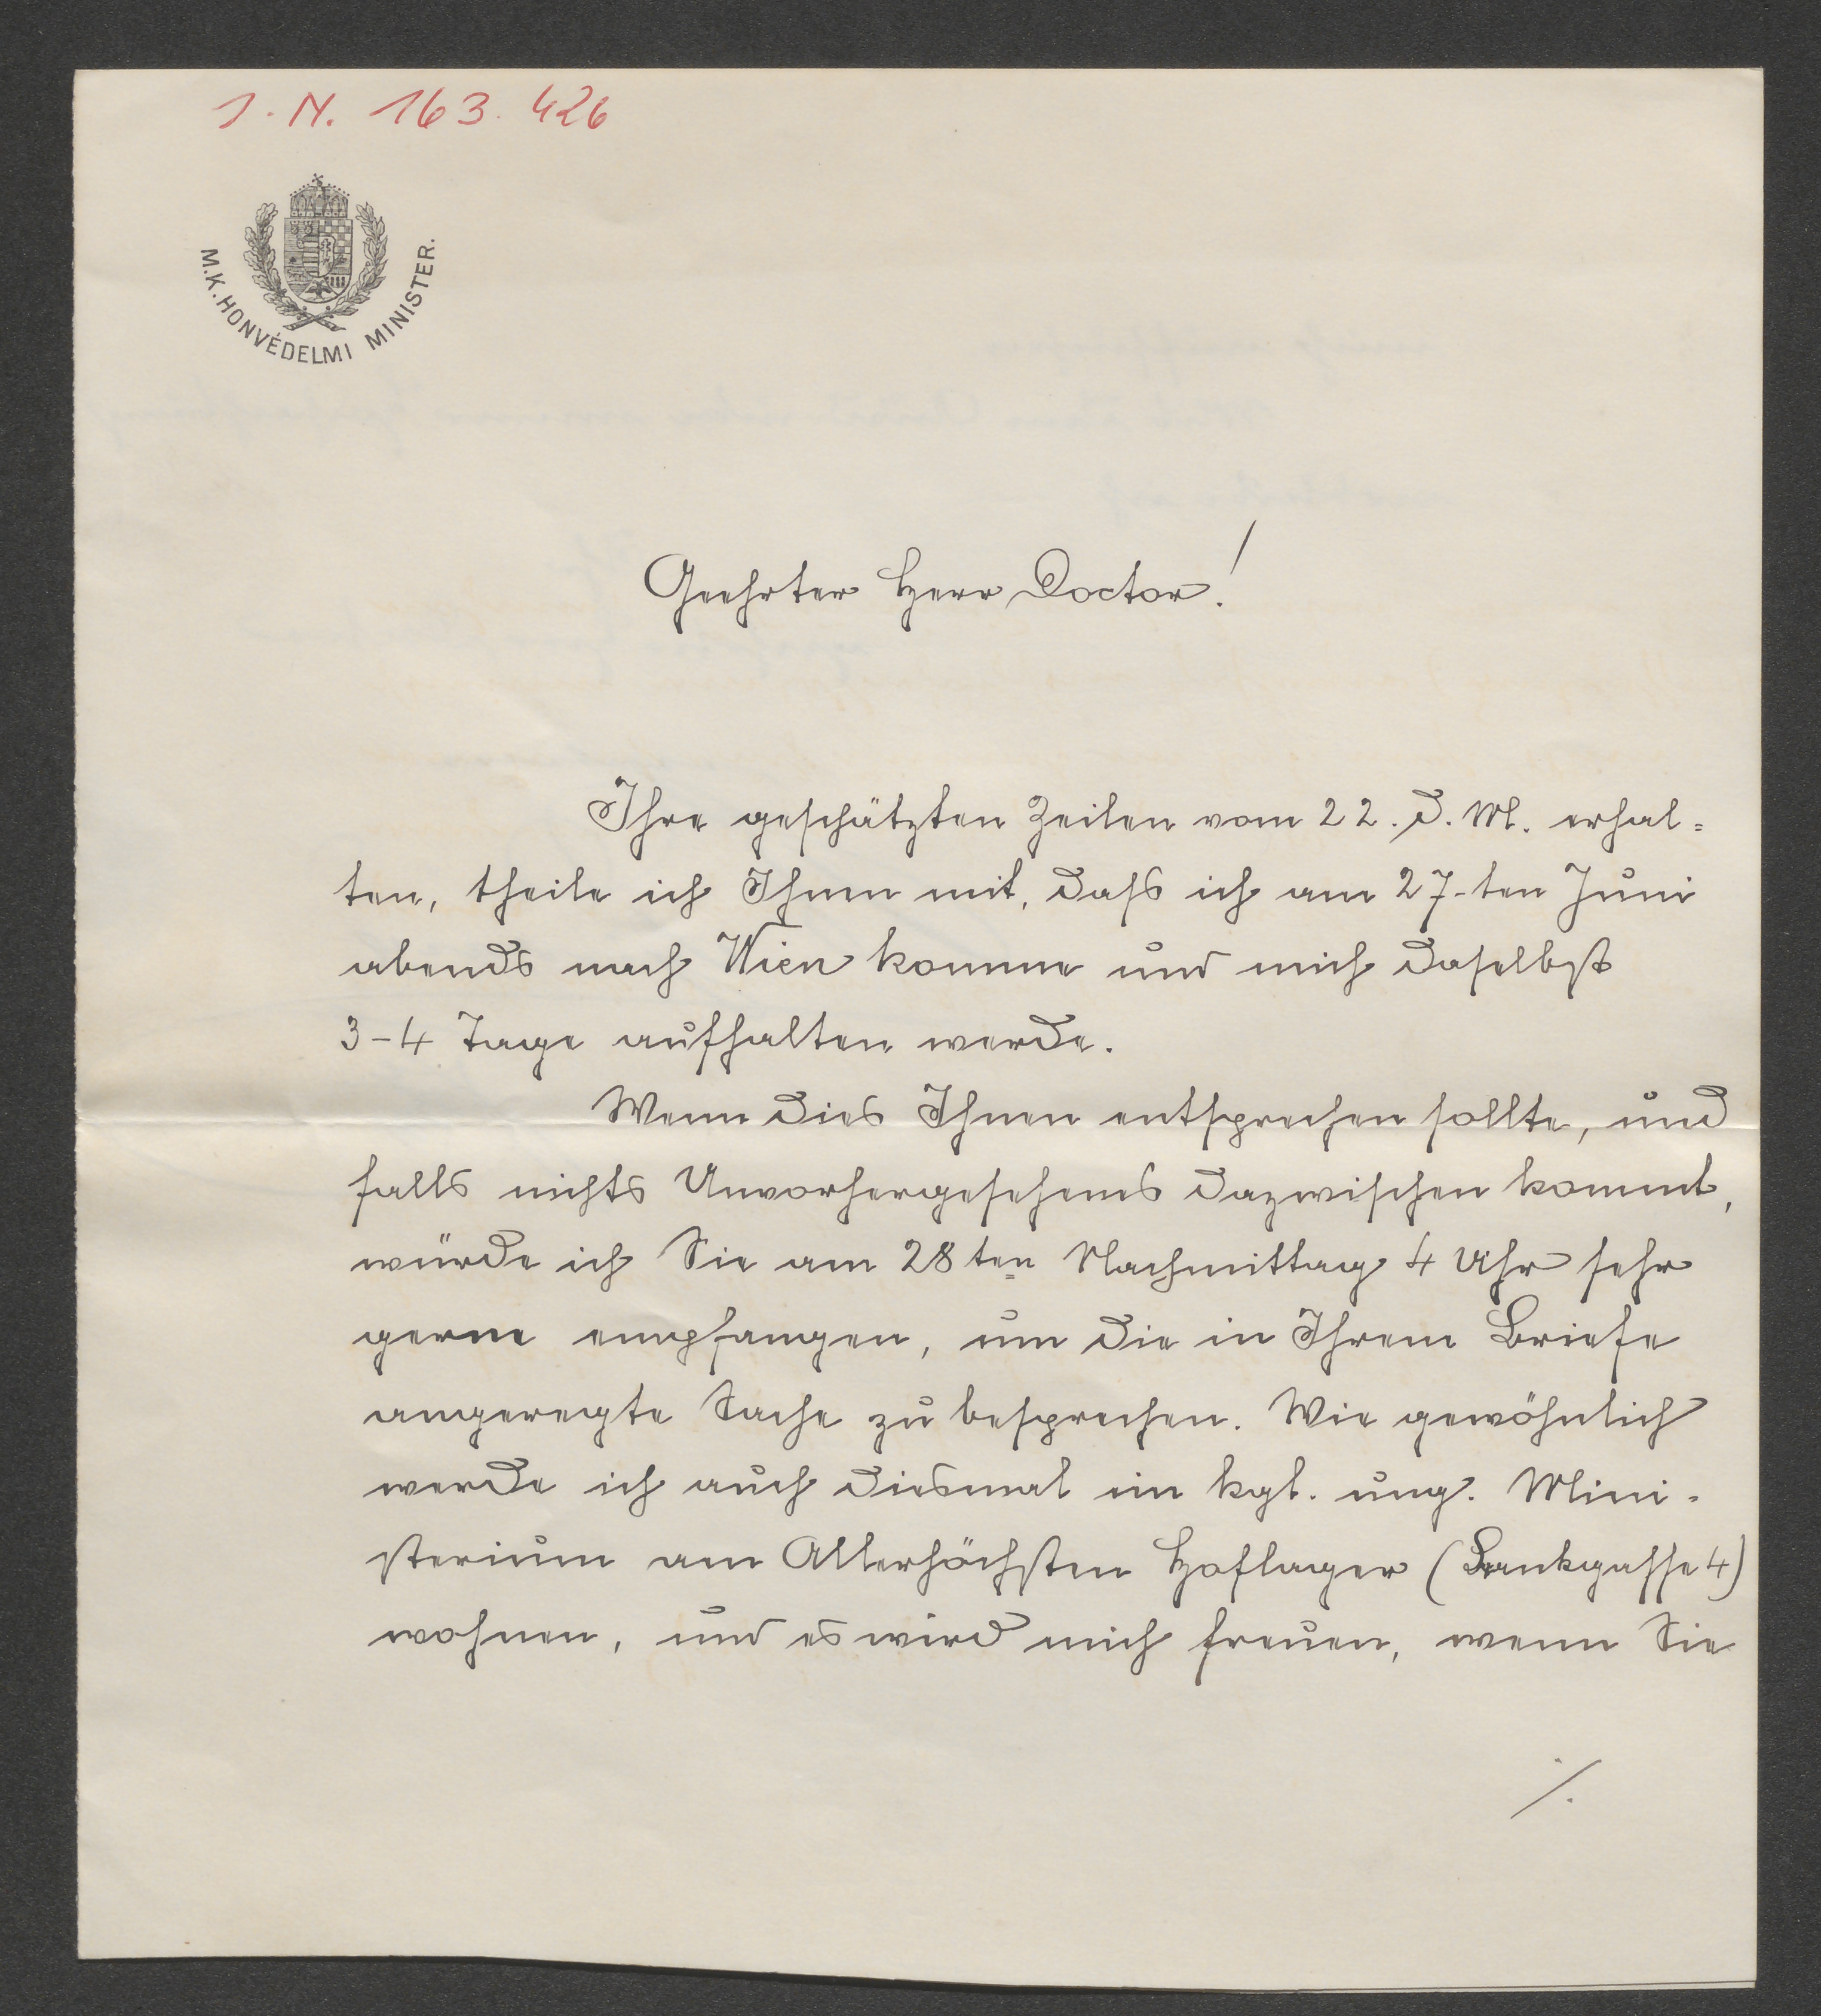 J.N. 163.426
M.K. HONVÉDELMI MINISTER.
Geehrter Herr Doctor!
Ihre geschätzten Zeilen vom 22. d. M. erhal=
ten, theile ich Ihnen mit, dass ich am 27-ten Juni
abends nach Wien komme und mich daselbst
3-4 Tage aufhalten werde.
Wenn dies Ihnen entsprechen sollte, und
falls nichts Unvorhergesehenes dazwischen kommt,
würde ich Sie am 28ten Nachmittag 4 Uhr sehr
gerne empfangen, um die in Ihrem Briefe
angeregte Sache zu besprechen. Wie gewöhnlich
werde ich auch diesmal im kgl. ung. Mini-
sterium am Allerhöchsten Hoflager (Bankgasse 4)
wohnen, und es wird mich freuen, wenn Sie
./.